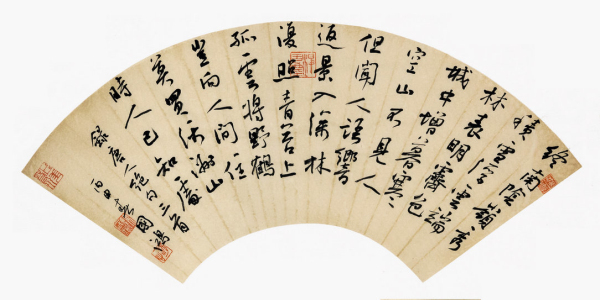 終南陰嶺秀
積雪浮雲端
林表明霽色
城中增暮寒
空山不見人
但聞人語響
返景入深林
復照青苔上
孤雲將野鶴
豈向人間住
莫買沃洲山
時人已知處
錄唐人絕句三首
國鴻